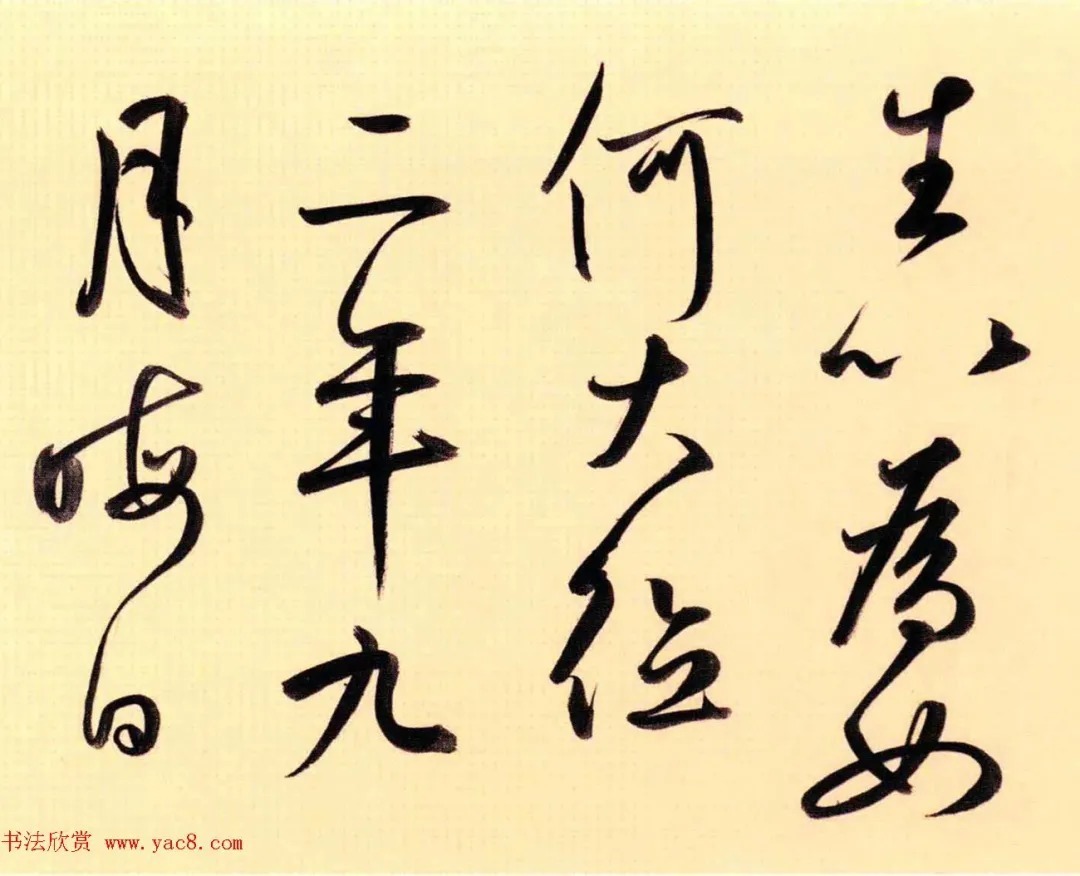 生以為如
何大德
二年九
月晦日
书法欣赏 www.yac8.com